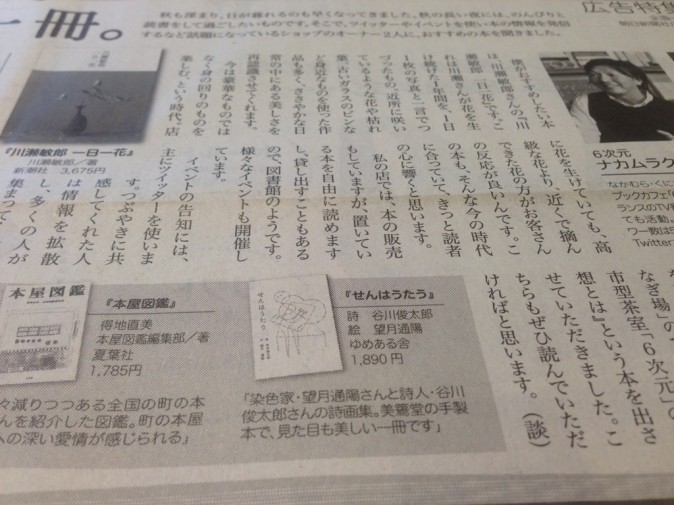 一冊。
秋も深まり、日が暮れるのも早くなってきました。秋の長い夜には、のんびりと
読書をして過ごしたいものです。そこで、ツイッターやイベントを使い本の情報を発信
するなど話題になっているショップのオーナー2人に、おすすめの本を聞きました。
広告特集
朝日新聞社
『川瀬敏郎 一日一花』
川瀬敏郎／著
新潮社 3,675円
僕がおすすめしたい本
は、川瀬敏郎さんの『川
瀬敏郎 一日一花』です。こ
れは川瀬さんが花を生
け続けた1年間を、1日
1枚の写真と一言でつ
づったもの。近所に咲い
ているような花や枯れ
葉、古いガラスのビンな
ど身近なものを使った作
品も多く、ささやかな日
常の中にある美しさを
再認識させてくれます。
今は豪華なものでは
なく身の回りのものを
楽しむ、という時代。店
に花を生けていても、高
級な花より、近くで摘ん
できた花の方がお客さん
の反応が良いんです。こ
の本も、そんな今の時代
に合っていて、きっと読者
の心に響くと思います。
私の店では、本の販売
もしていますが、置いてい
る本を自由に読めます
し、貸し出すこともある
ので、図書館のようです。
様々なイベントも開催し
ています。
イベントの告知には、
主にツイッターを使いま
す。つぶやきに共
感してくれた人
は情報を拡散
し、多くの人が
集まって
6次元
ナカムラク
なかむら・くに
ブックカフェ「6
ランスのTV
ても活動。
ワー数は5
Twitter
なぎ場」の
市型茶室「6次元」の
想とは』という本を出さ
せていただきました。こ
ちらもぜひ読んでいただ
ければと思います。（談）
本屋図鑑
『本屋図鑑』
得地直美
本屋図鑑編集部／著
夏葉社
1,785円
々減りつつある全国の町の本
んを紹介した図鑑。町の本屋
への深い愛情が感じられる」
せんはうたう
『せんはうたう』
詩 谷川俊太郎
絵 望月通陽
ゆめある舎
1,890円
「染色家・望月通陽さんと詩人・谷川
俊太郎さんの詩画集。美篶堂の手製
本で、見た目も美しい一冊です」